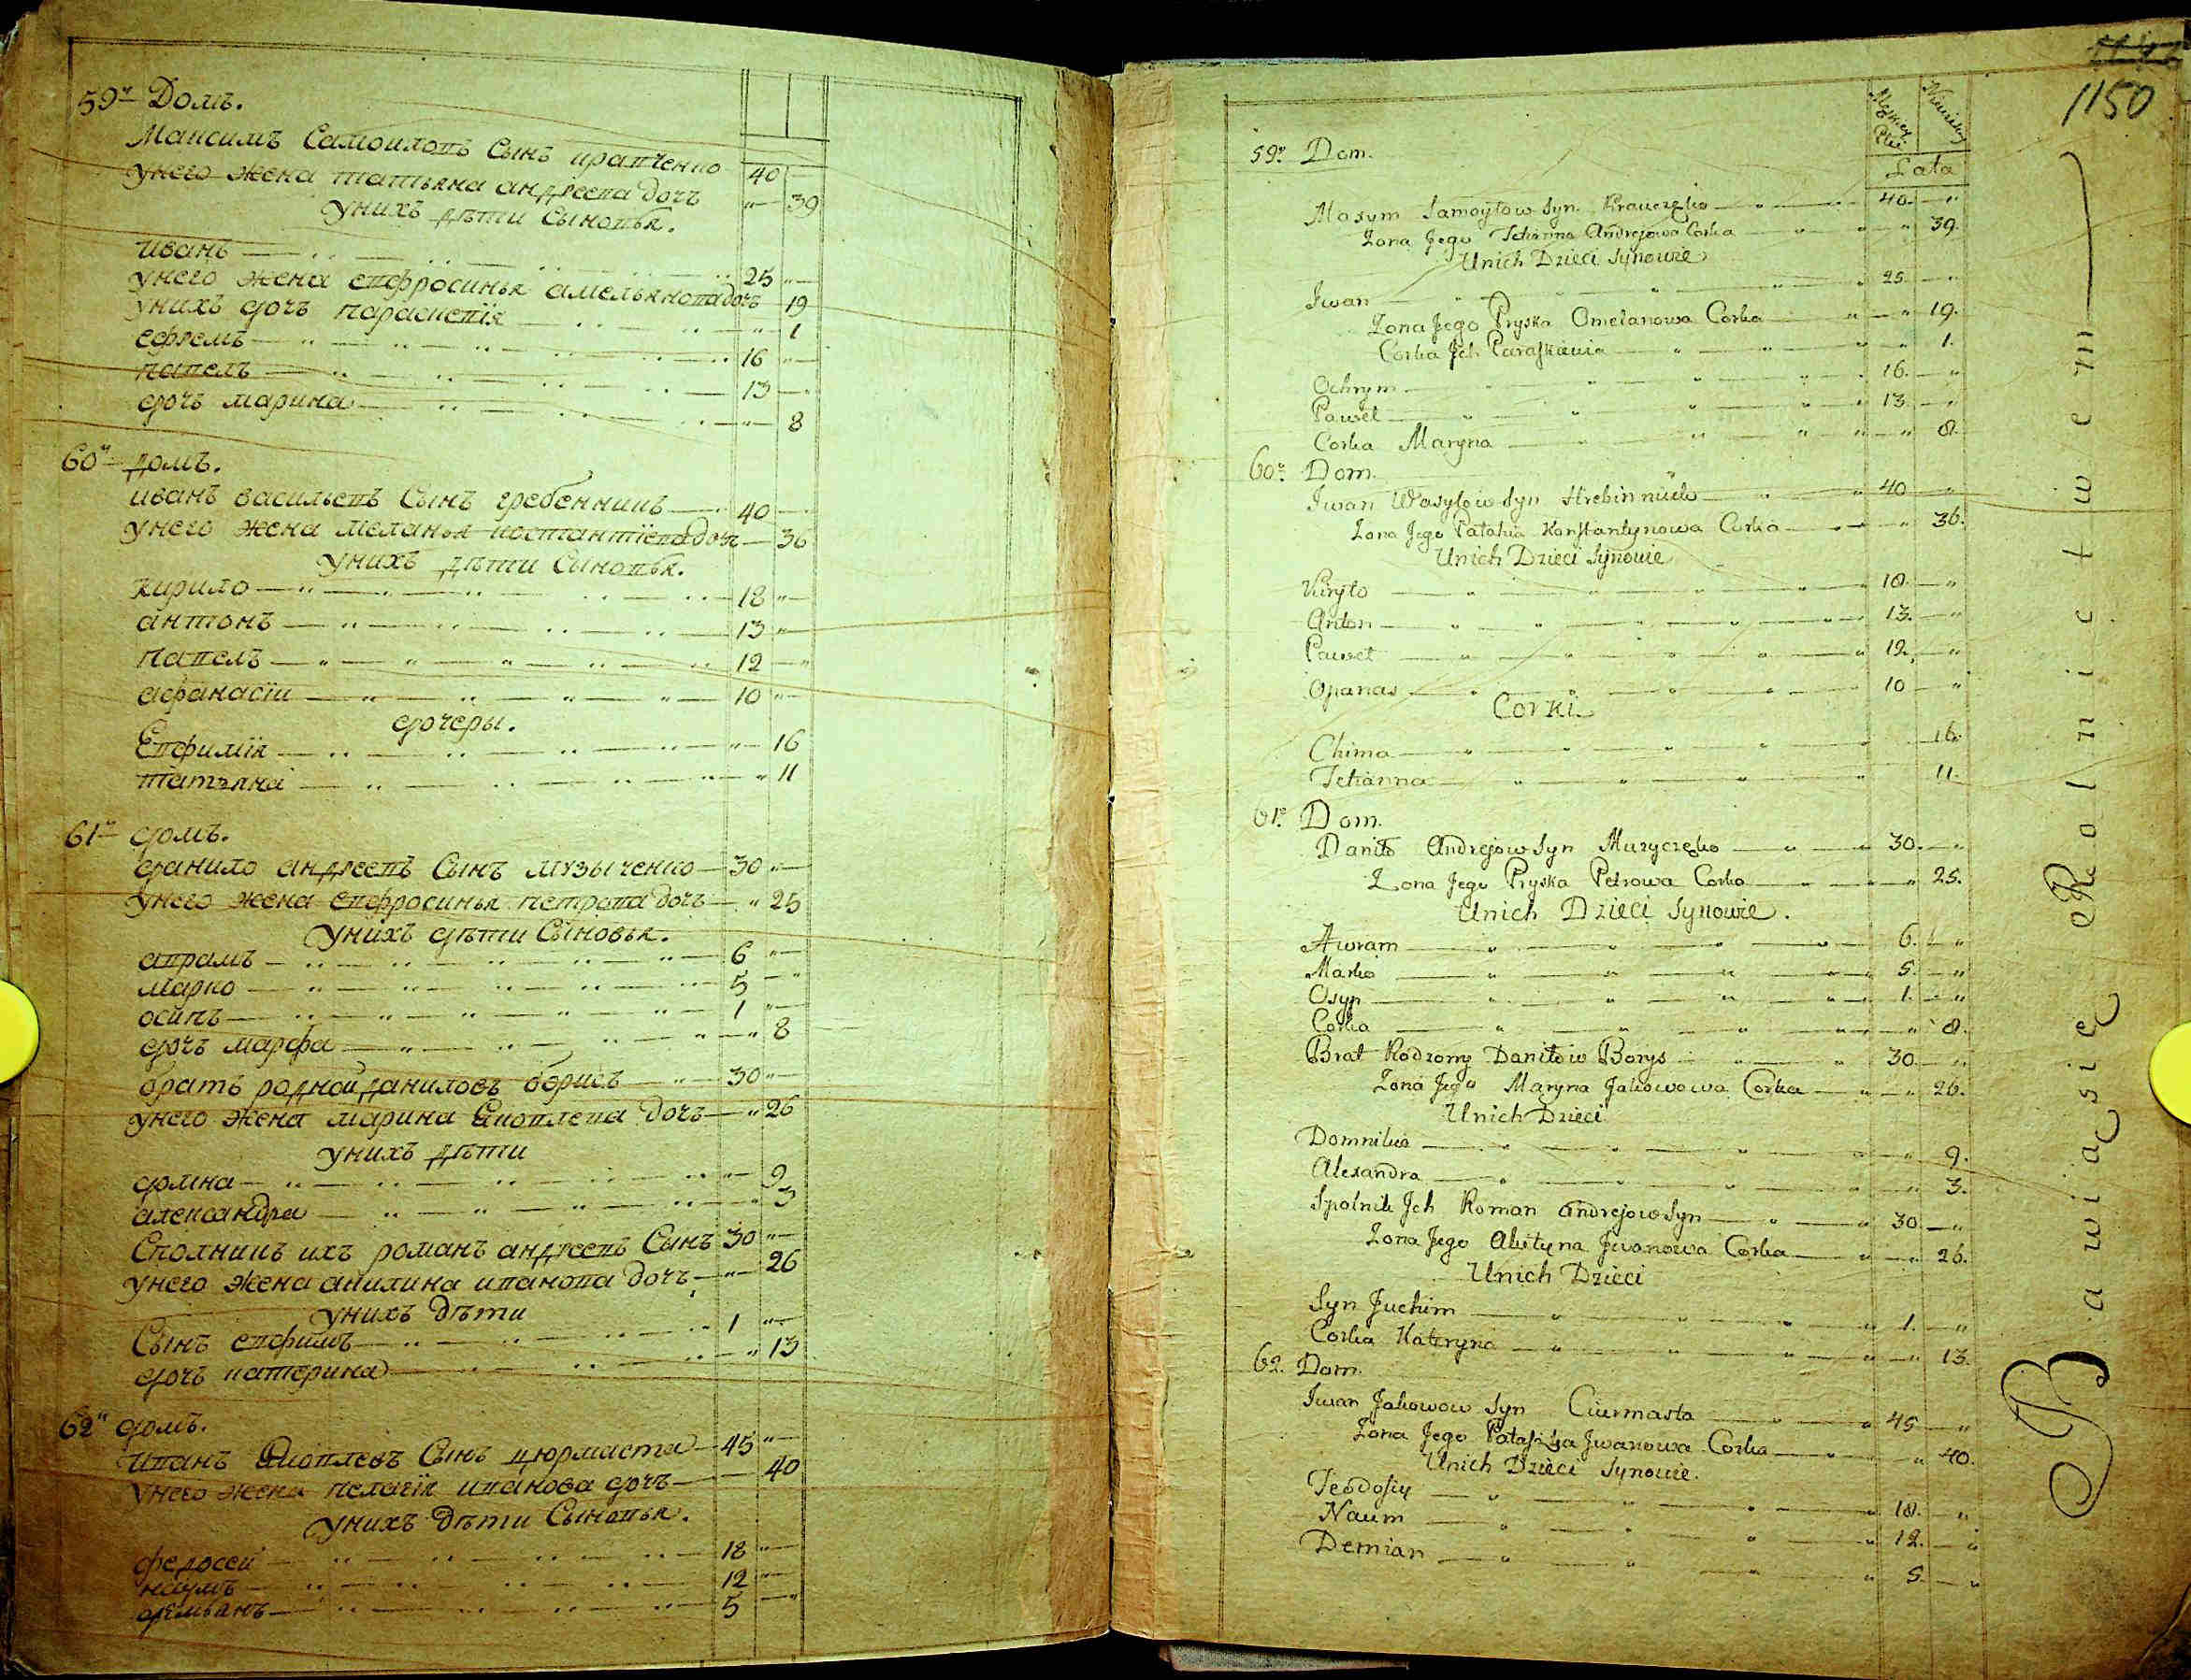 59й Домъ.
Максимъ Самоиловъ Сынъ кравченко 40 —
унего жена татьяна андреева дочъ " — 39
унихъ дѣти Сыновья.
иванъ — 25 " —
унего жена евфросинья амельянова дочъ — 19
унихъ дочъ параскевія — " — 1
ефремъ — 16 " —
павелъ — 13 —
дочъ марина — " — 8
60й домъ.
иванъ васильевъ Сынъ гребенникъ — 40 —
унего жена меланья костантіева дочъ — 36
унихъ дѣти Сыновья.
кирило — 18 " —
антонъ — 13 " —
павелъ — 12 — "
афанасіи — 10 " —
дочеры.
Евфимія — " — 16
татьяна — " 11
61й домъ.
данило андреевъ Сынъ музыченко — 30 " —
унего жена евфросинья петрова дочъ — " 25
унихъ дѣти Сыновья.
аврамъ — 6 " —
марко — 5 — "
осипъ — 1 " —
дочъ марфа — " 8
братъ родной даниловъ борисъ — 30 " —
унего жена марина Яковлева дочъ — " 26
унихъ дѣти
домна — " — 9
александра — " 3
Сполникъ ихъ романъ андреевъ Сынъ 30 " —
унего жена акилина иванова дочъ — " — 26
унихъ дѣти
Сынъ евфимъ — 1 " —
дочъ катерина — " 13
62й домъ.
иванъ Яковлевъ Сынъ дюрмаста — 45 " —
унего жена пелагія иванова дочъ — — 40
унихъ дѣти Сыновья.
федосеи — 18 " —
наумъ — 12 " —
демьянъ — 5 — "
1150
Męzkey Płci
Lata
59o Dom.
Maxym Samoyłow Syn Krawczęko — 40. — "
Zona Jego Tetianna Andrejowa Corka — " 39.
Unich Dzieci Synowie
Jwan — 25. — "
Zona Jego Pryska Omelanowa Corka — " 19.
Corka Jch Paraskiewia — " 1.
Ochrym — 16. — "
Paweł — 13. — "
Corka Maryna — " 8.
60o Dom.
Jwan Wasylow Syn Hrebinnik — 40 — "
Zona Jego Pałahia Konstantynowa Corka — " 36.
Unich Dzieci Synowie
Kiryło — 18. — "
Anton — 13. — "
Paweł — 12. — "
Opanas — 10 — "
Corki
Chima — 16.
Tetianna — 11.
61o Dom.
Daniło Andrejow Syn Muzyczęko — 30. — "
Zona Jego Pryska Petrowa Corka — " 25.
Unich Dzieci Synowie.
Awram — 6. — "
Marko — 5. — "
Osyp — 1. — "
Corka — " 8.
Brat Rodzony Daniłow Borys — 30. — "
Zona Jego Maryna Jakowowa Corka — " 26.
Unich Dzieci
Domnikia — " 9.
Alexandra — " 3.
Spolnik Jch Roman Andrejow Syn — 30 — "
Zona Jego Akityna Jwanowa Corka — " 26.
Unich Dzieci
Syn Juchim — 1. — "
Corka Kateryna — " 13.
62. Dom.
Jwan Jakowow Syn Ciurmasta — 45 — "
Zona Jego Pałaszka Jwanowa Corka — " 40.
Unich Dzieci Synowie.
Teodosiy — 18. — "
Naum — 12. — "
Demian — 5. — "
Bawiąsię Rolnictwem